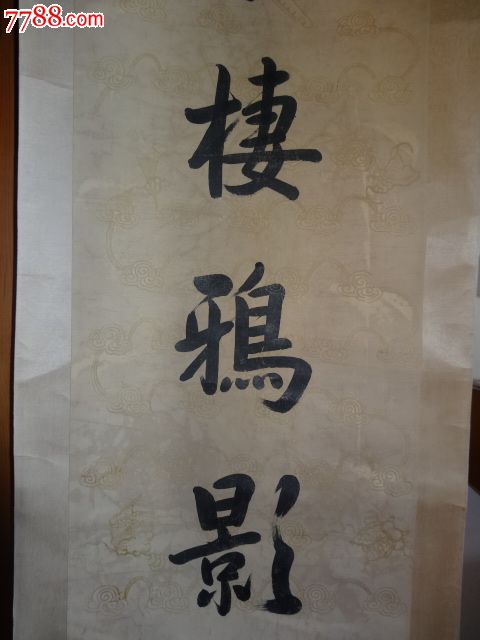 7788.com
棲
鴉
影